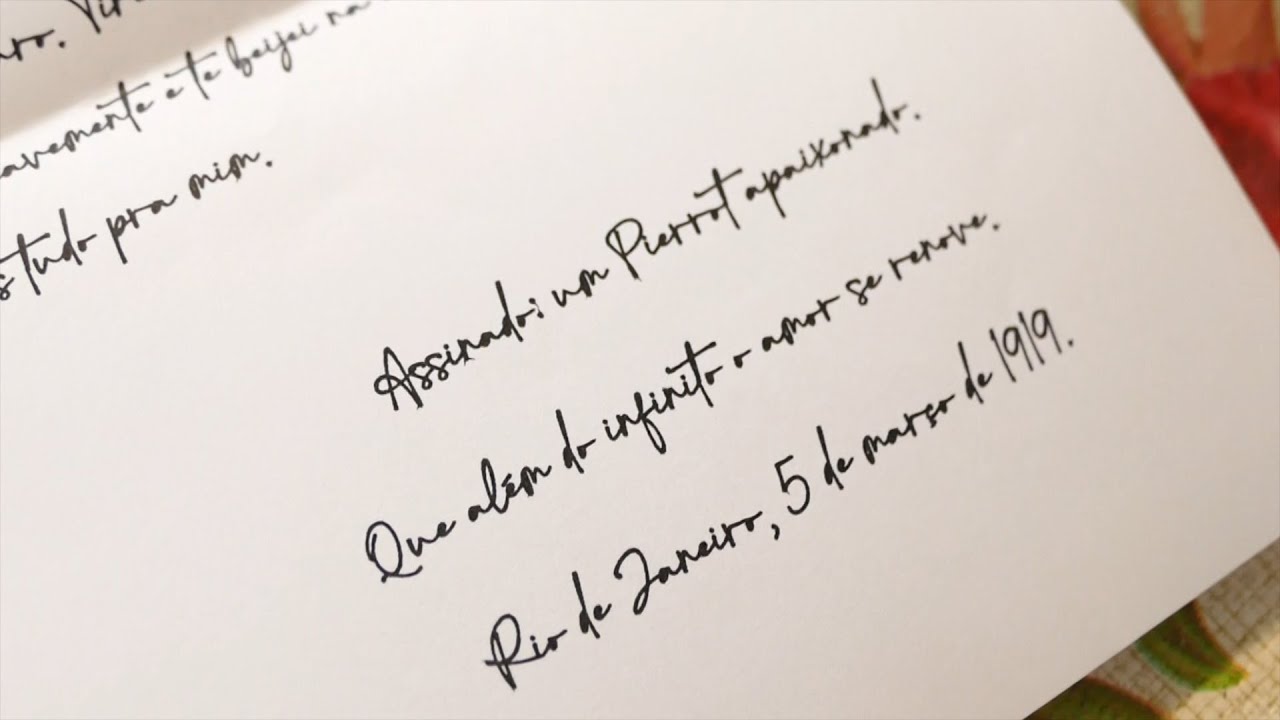 avemente e te beijei na
tudo pra mim.
Assinado: um Pierrot apaixonado.
Que além do infinito o amor se renove.
Rio de Janeiro, 5 de março de 1919.